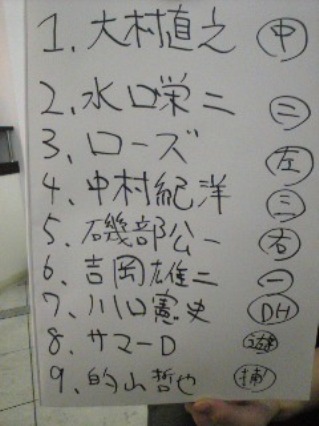 1. 大村直之 中
2. 水口栄二 二
3. ローズ 左
4. 中村紀洋 三
5. 磯部公一 右
6. 吉岡雄二 一
7. 川口憲史 DH
8. サマーD 遊
9. 的山哲也 捕